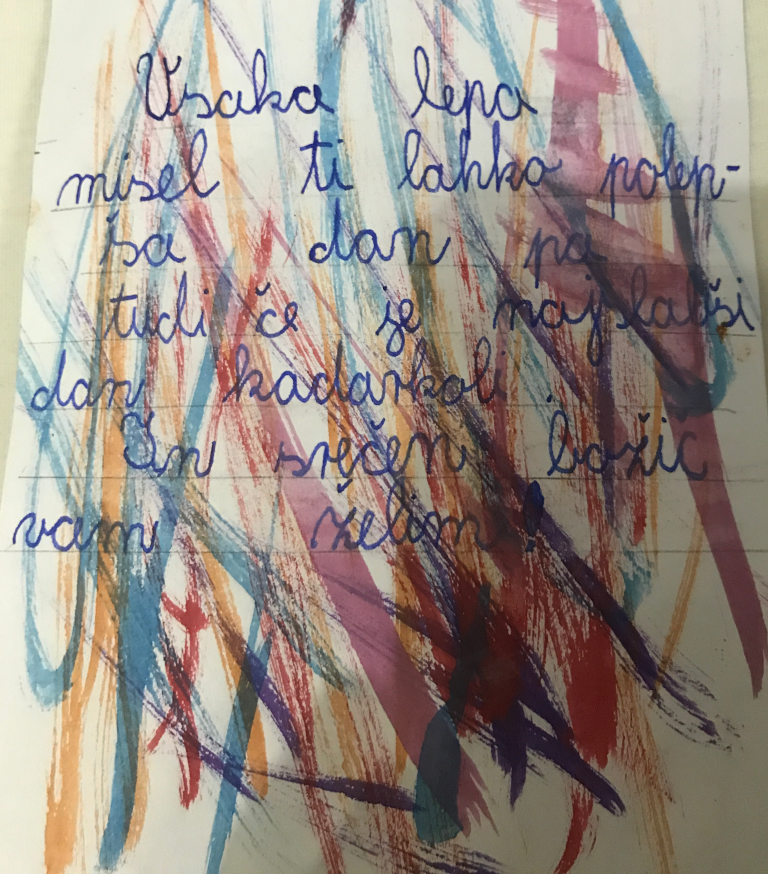 Vsaka lepa
misel ti lahko polep-
ša dan pa
tudi če je najslabši
dan kadarkoli.
In srečen božič
vam želim!